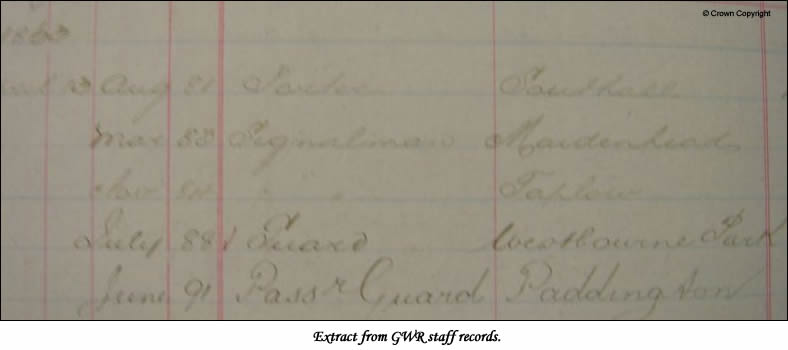 © Crown Copyright
1863
13 Aug 81 Porter Southall
Mar 83 Signalman Maidenhead
Nov 84 " " Taplow
July 88 Guard Westbourne Park
June 91 Passr Guard Paddington
Extract from GWR staff records.